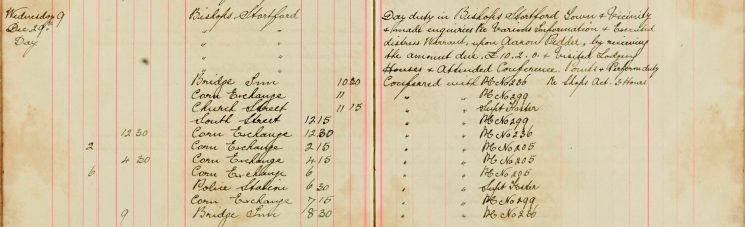 Wednesday 9 Bishops Stortford Day duty in Bishops Stortford Town & Vicinity
Dec 29th " & made enquiries Re Various Information & Executed
Day " distress Warrant, upon Aaron Pedder, by receiving
" the amount due £10.2.0. & Visited Lodging
" Houses & Attended Conference Points & Perform duty
Bridge Inn 10 30 Conferred with PC No 236 Re Shops Act. 3 Hours
Corn Exchange 11 " PC No 299
Church Street 11 15 " Supt
South Street 12 15 " PC No 299
12 30 Corn Exchange 12 30 " PC No 236
2 Corn Exchange 2 15 " PC No 205
4 30 Corn Exchange 4 15 " PC No 205
6 Corn Exchange 6 " PC No 295
Police Station 6 30 " Supt
Corn Exchange 7 15 " PC No 299
9 Bridge Inn 8 30 " PC No 236